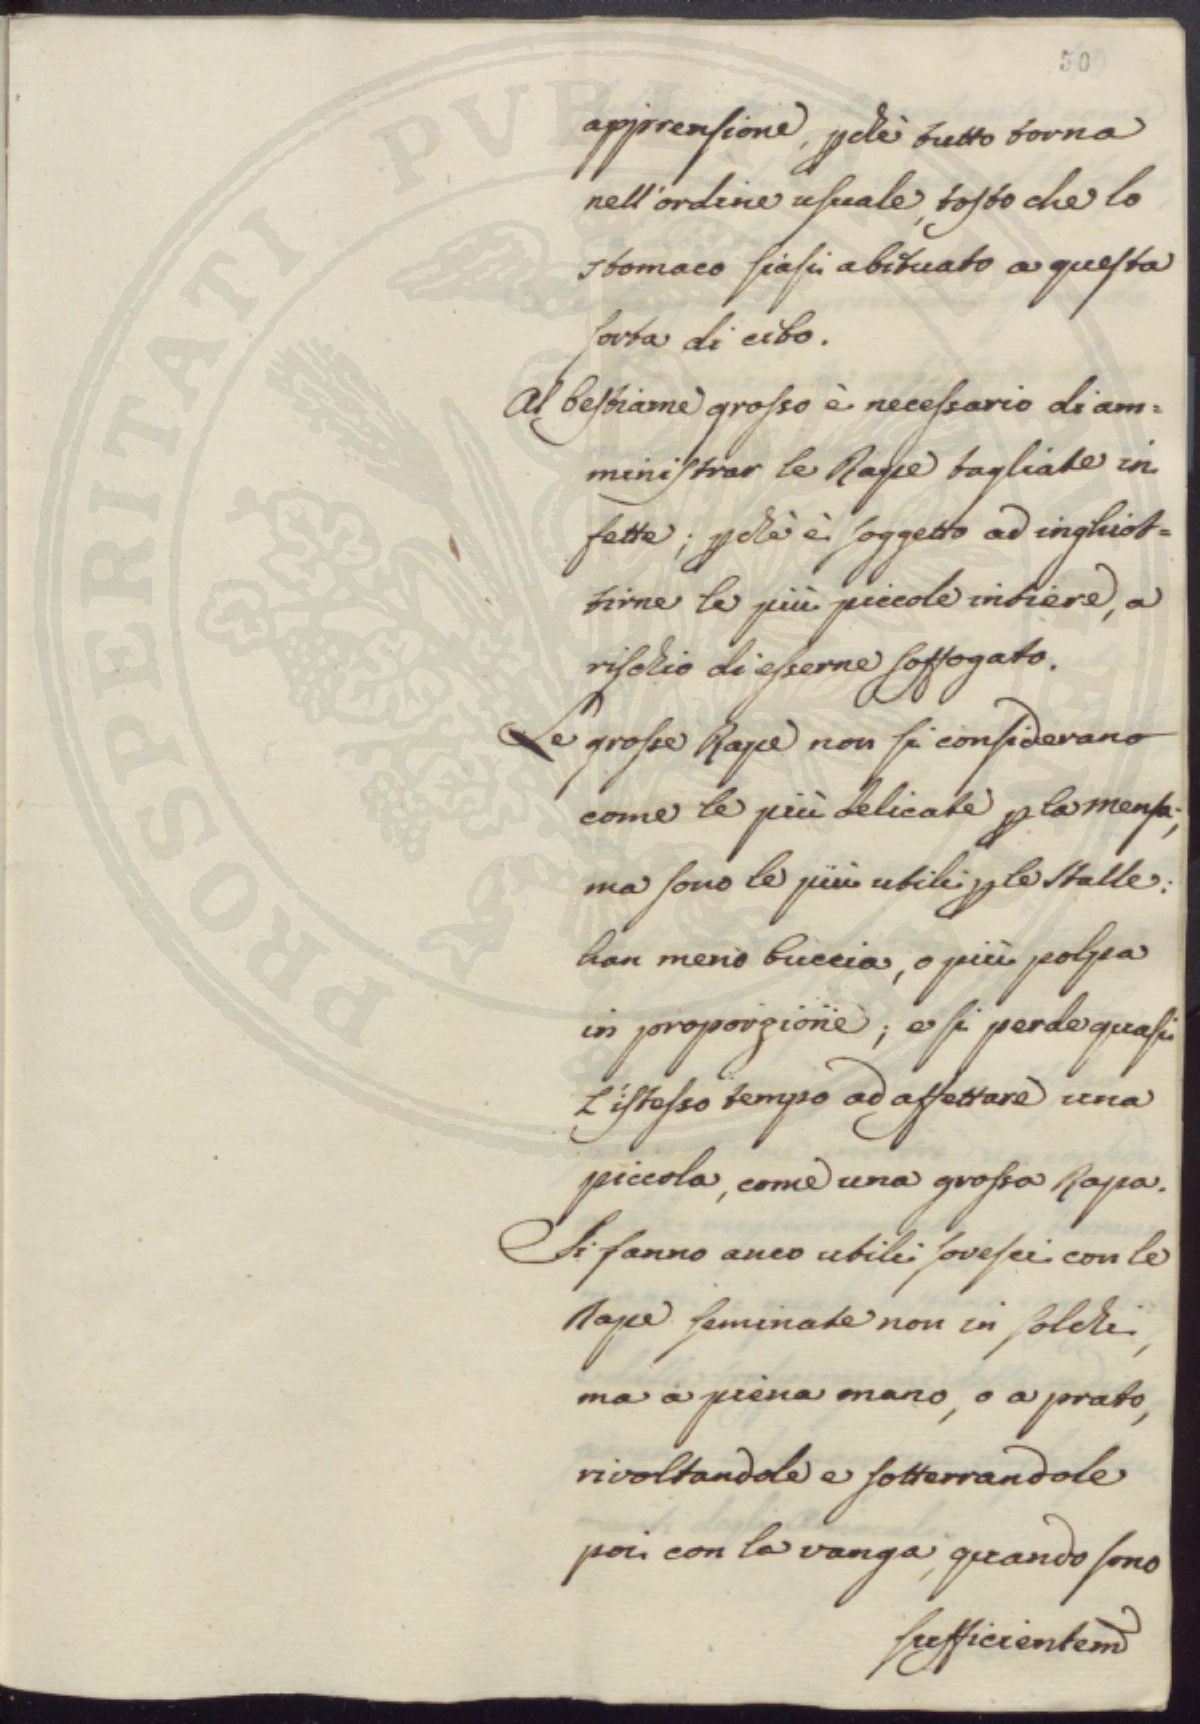 50
apprensione, pchè tutto torna
nell'ordine usuale, tosto che lo
stomaco siasi abituato a questa
sorta di cibo.
Al bestiame grosso è necessario di am=
ministrar le Rape tagliate in
fette; pchè è soggetto ad inghiot=
tirne le più piccole intiere, a
rischio di esserne soffogato.
Le grosse Rape non si considerano
come le più delicate p la mensa;
ma sono le più utili p le stalle:
han meno buccia, o più polpa
in proporzione; e si perde quasi
l'istesso tempo ad affettare una
piccola, come una grossa Rapa.
Si fanno anco utili sovesci con le
Rape seminate non in solchi,
ma a piena mano, o a prato,
rivoltandole e sotterrandole
poi con la vanga, quando sono
sufficientem
PROSPERITATI PUBLICAE